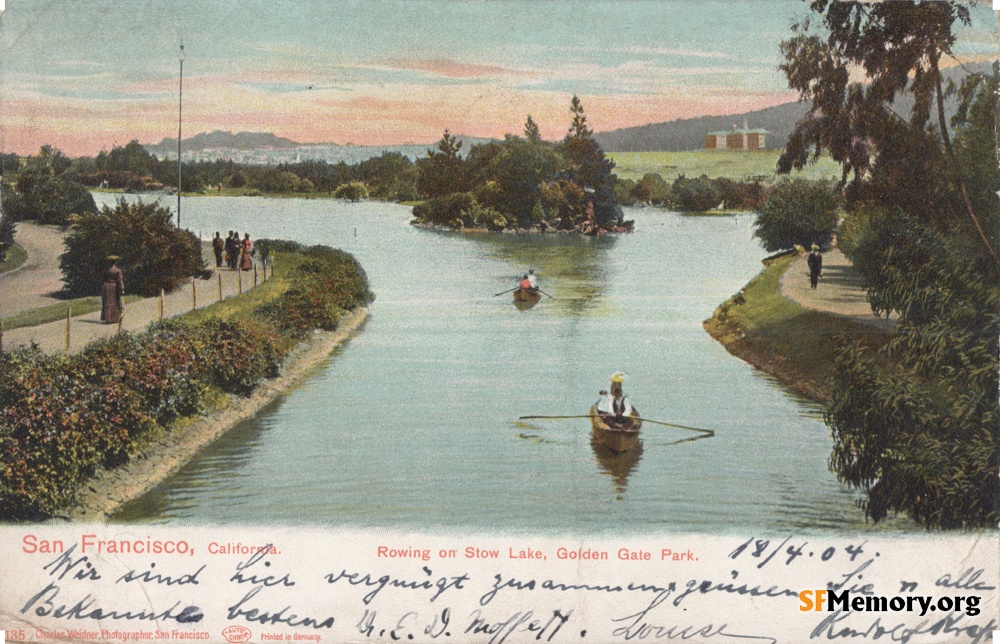 San Francisco, California.
Rowing on Stow Lake, Golden Gate Park.
18/4.04.
Wir sind hier vergnügt zusammen, grüssen Sie u alle
Bekannte bestens H. E. D. Moffett. Louise Rudolf
135 Charles Weidner, Photographer, San Francisco.
AUTO-CHROM
Printed in Germany.
SFMemory.org